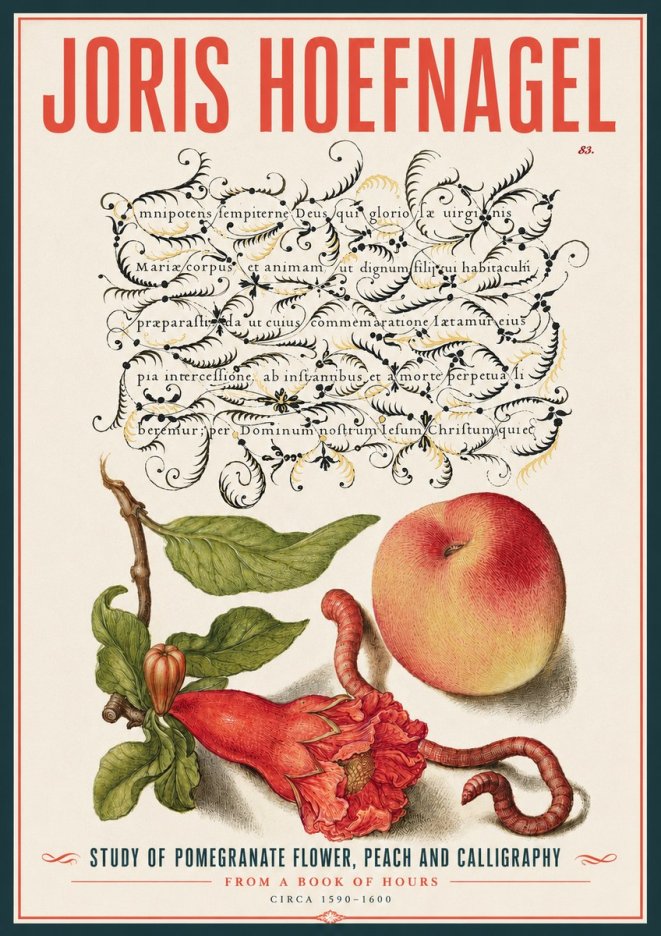 JORIS HOEFNAGEL
83.
mnipotens ſempiterne Deus qui glorioſæ uirginis
Mariæ corpus et animam ut dignum filij tui habitaculū
præparaſti da ut cuius commemaratione lætamur eius
pia interceſſione, ab inſtantibus et a morte perpetua li
beremur; per Dominum noſtrum Ieſum Chriſtum
STUDY OF POMEGRANATE FLOWER, PEACH AND CALLIGRAPHY
FROM A BOOK OF HOURS
CIRCA 1590–1600